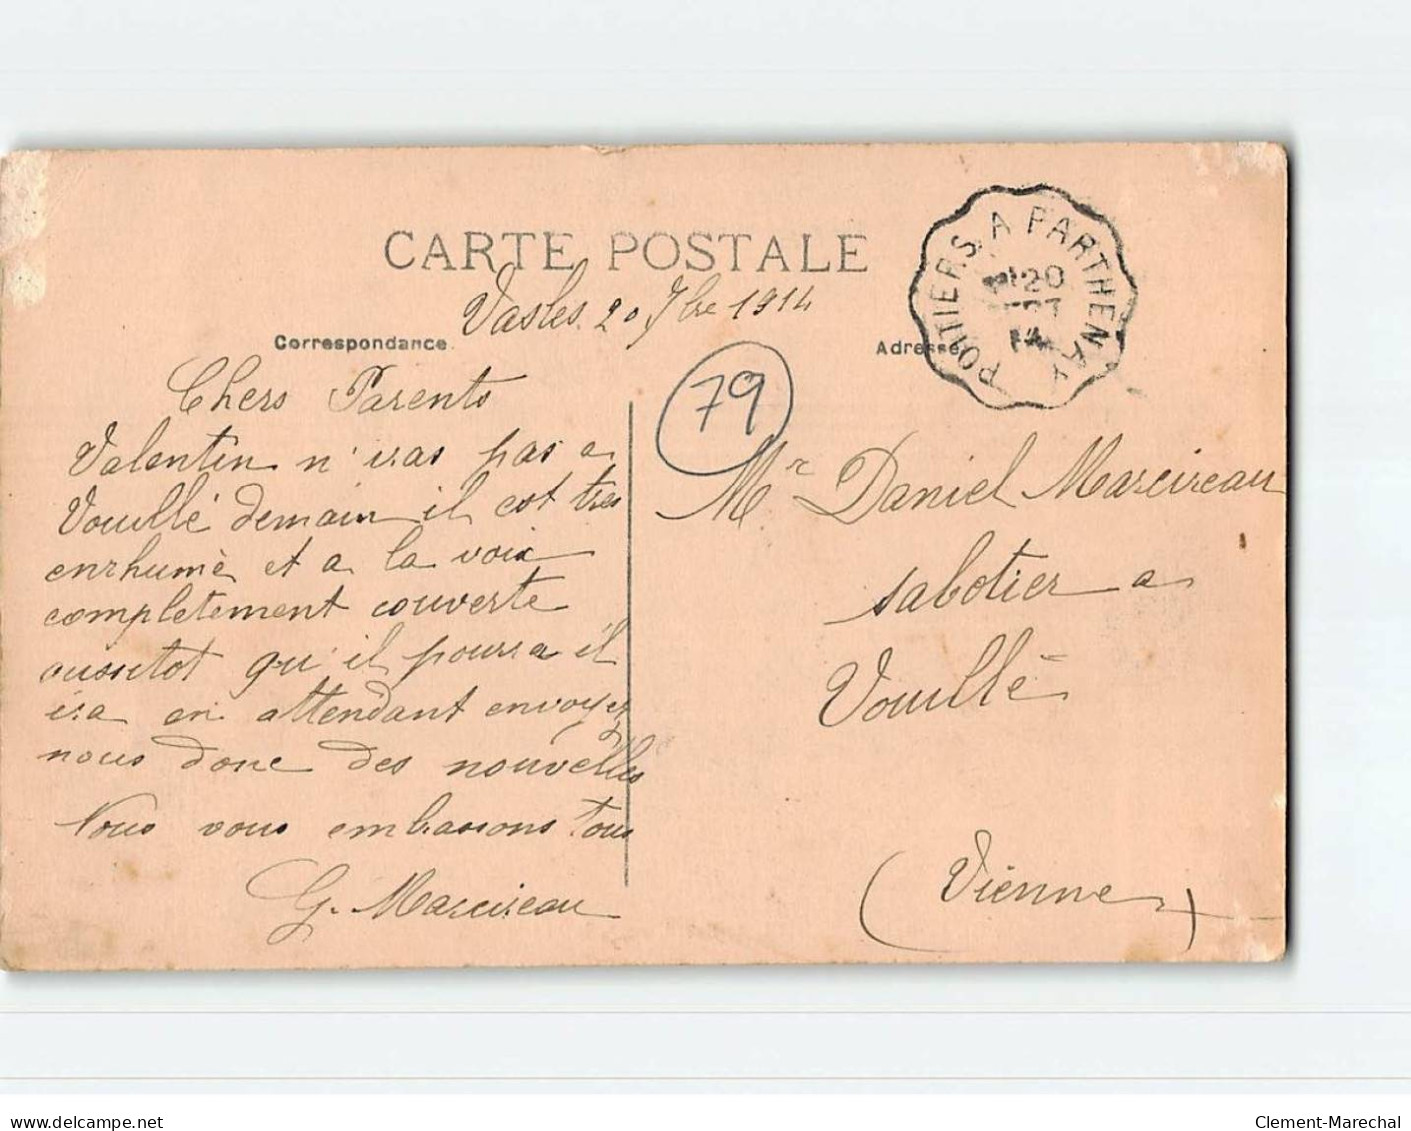 CARTE POSTALE
Vasles 20 7bre 1914
Correspondance
Adresse
POITIERS A PARTHENAY
20
14
79
Chers Parents
Valentin n'iras pas a
Vouillé demain il est tres
enrhumè et a la voix
completement couverte
aussitot qu'il pourra il
ira en attendant envoyez
nous donc des nouvelles
Nous vous embrassons tous
G. Marcireau
Mr Daniel Marcireau
sabotier a
Vouillé
(Vienne)
delcampe.net
Clement-Marechal